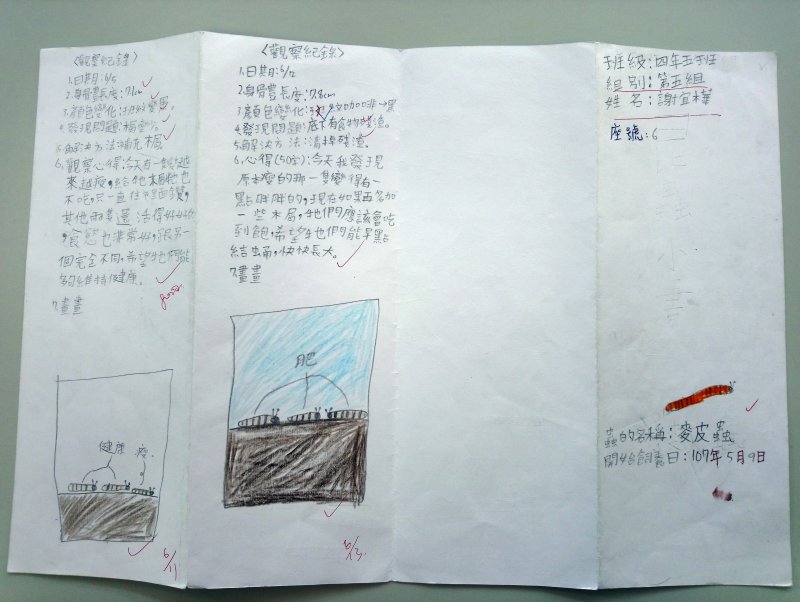 〈觀察紀錄〉
1.日期:6/5
2.身體長度:7.1cm
3.顏色變化:
4.發現問題:
5.解決方法:補充
6.觀察心得:今天有一隻越
來越瘦,給牠木屑牠也
不吃,只一直住
其他兩隻還活得好好的
,食慾也非常好,跟另一
個完全不同,希望牠們能
夠維持健康。
Good
7.畫畫
健康 瘦
6/11
〈觀察紀錄〉
1.日期:6/12
2.身體長度:7.8cm
3.顏色變化:咖啡→黑
4.發現問題:底下有食物殘渣。
5.解決方法:清掉殘渣。
6.心得(50字):今天我發現
原本瘦的那一隻變得有一
點胖胖的,現在如果再多加
一些木屑,牠們應該會吃
到飽,希望牠們能早點
結蛹,快快長大。
7.畫畫
肥
6/13
班級:四年五班
組別:第五組
姓名:謝宜樺
座號:6
蟲的名稱:麥皮蟲
開始飼養日:107年5月9日